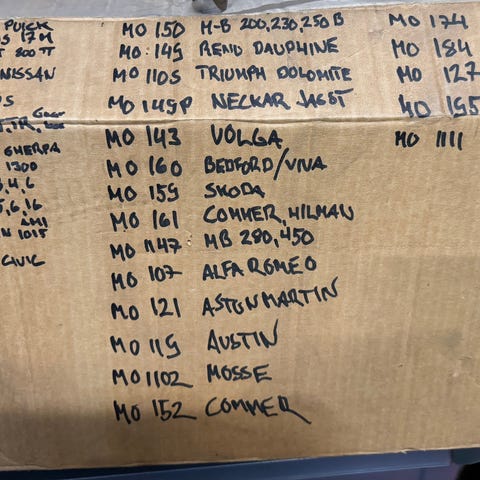 MO 150 M-B 200,230,250 B MO 174
17M MO 149 RENO DAUPHINE MO 184
NISSAN MO 1105 TRIUMPH DOLOMITE MO 127
MO 149P NECKAR JAGST MO 195
MO 143 VOLGA MO 1111
SHERPA MO 160 BEDFORD/VIVA
1300
MO 159 SKODA
MO 161 COMMER, HILMAN
AMI
N 1015 MO 1147 MB 280,450
CIVIC MO 107 ALFA ROMEO
MO 121 ASTON MARTIN
MO 119 AUSTIN
MO 1102 MOSSE
MO 152 COMMER